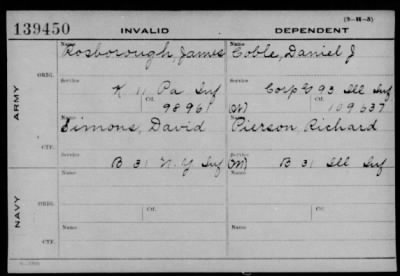 (3-M-5)
139450 INVALID DEPENDENT
ARMY ORIG. Name Rosborough, James Name Coble, Daniel J
Service K 11 Pa Inf Service Corp G 93 Ill Inf
Ctf. 98961 (W) Ctf. 109637
CTF. Name Simons, David Name Pierson, Richard
Service B 31 N.Y Inf Service (M) B 31 Ill Inf
NAVY ORIG. Name Name
Ctf. Ctf.
CTF. Name Name